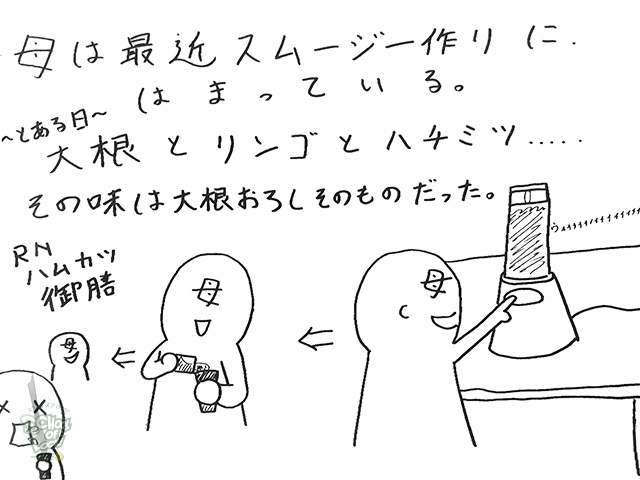 母は最近スムージー作りに.
はまっている。
~とある日~
大根とリンゴとハチミツ.....
その味は大根おろしそのものだった。
RN
ハムカツ
御膳
母
母
母